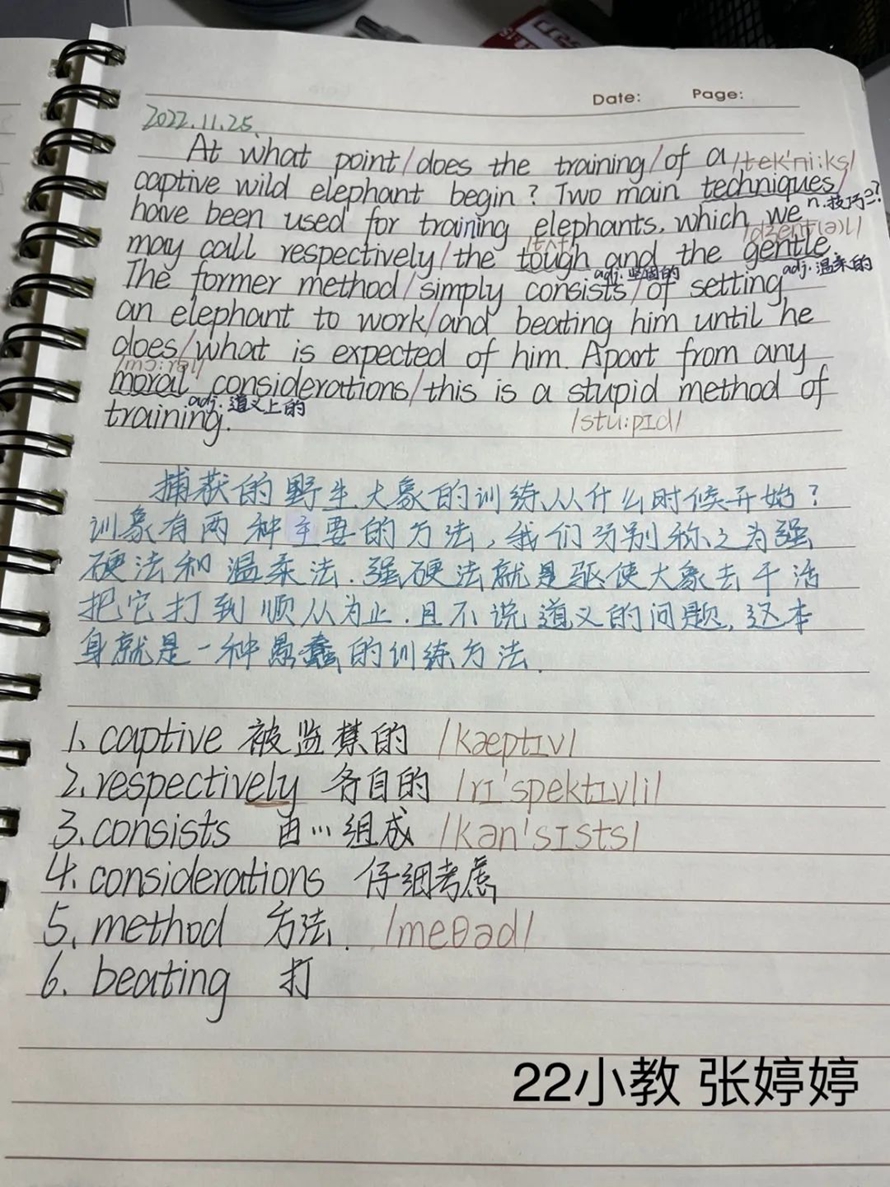 Date: Page:
2022.11.25.
At what point/does the training/of a /tek'ni:ks/
captive wild elephant begin? Two main techniques/
n.技巧
have been used for training elephants, which we
may call respectively/the tough and the gentle.
adj.坚固的 adj.温柔的
The former method/simply consists/of setting
an elephant to work/and beating him until he
does/what is expected of him. Apart from any
/mɔ:rəl/
moral considerations/this is a stupid method of
adj.道义上的
training. /stu:pɪd/
捕获的野生大象的训练从什么时候开始?
训象有两种主要的方法,我们分别称之为强
硬法和温柔法.强硬法就是驱使大象去干活
把它打到顺从为止.且不说道义的问题,这本
身就是一种愚蠢的训练方法.
1. captive 被监禁的 /kæptɪv/
2. respectively 各自的 /rɪ'spektɪvli/
3. consists 由…组成 /kən'sɪsts/
4. considerations 仔细考虑
5. method 方法. /meθəd/
6. beating 打
22小教 张婷婷